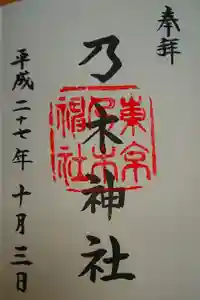 奉拝
乃木神社
東京乃木神社
平成二十七年十月三日